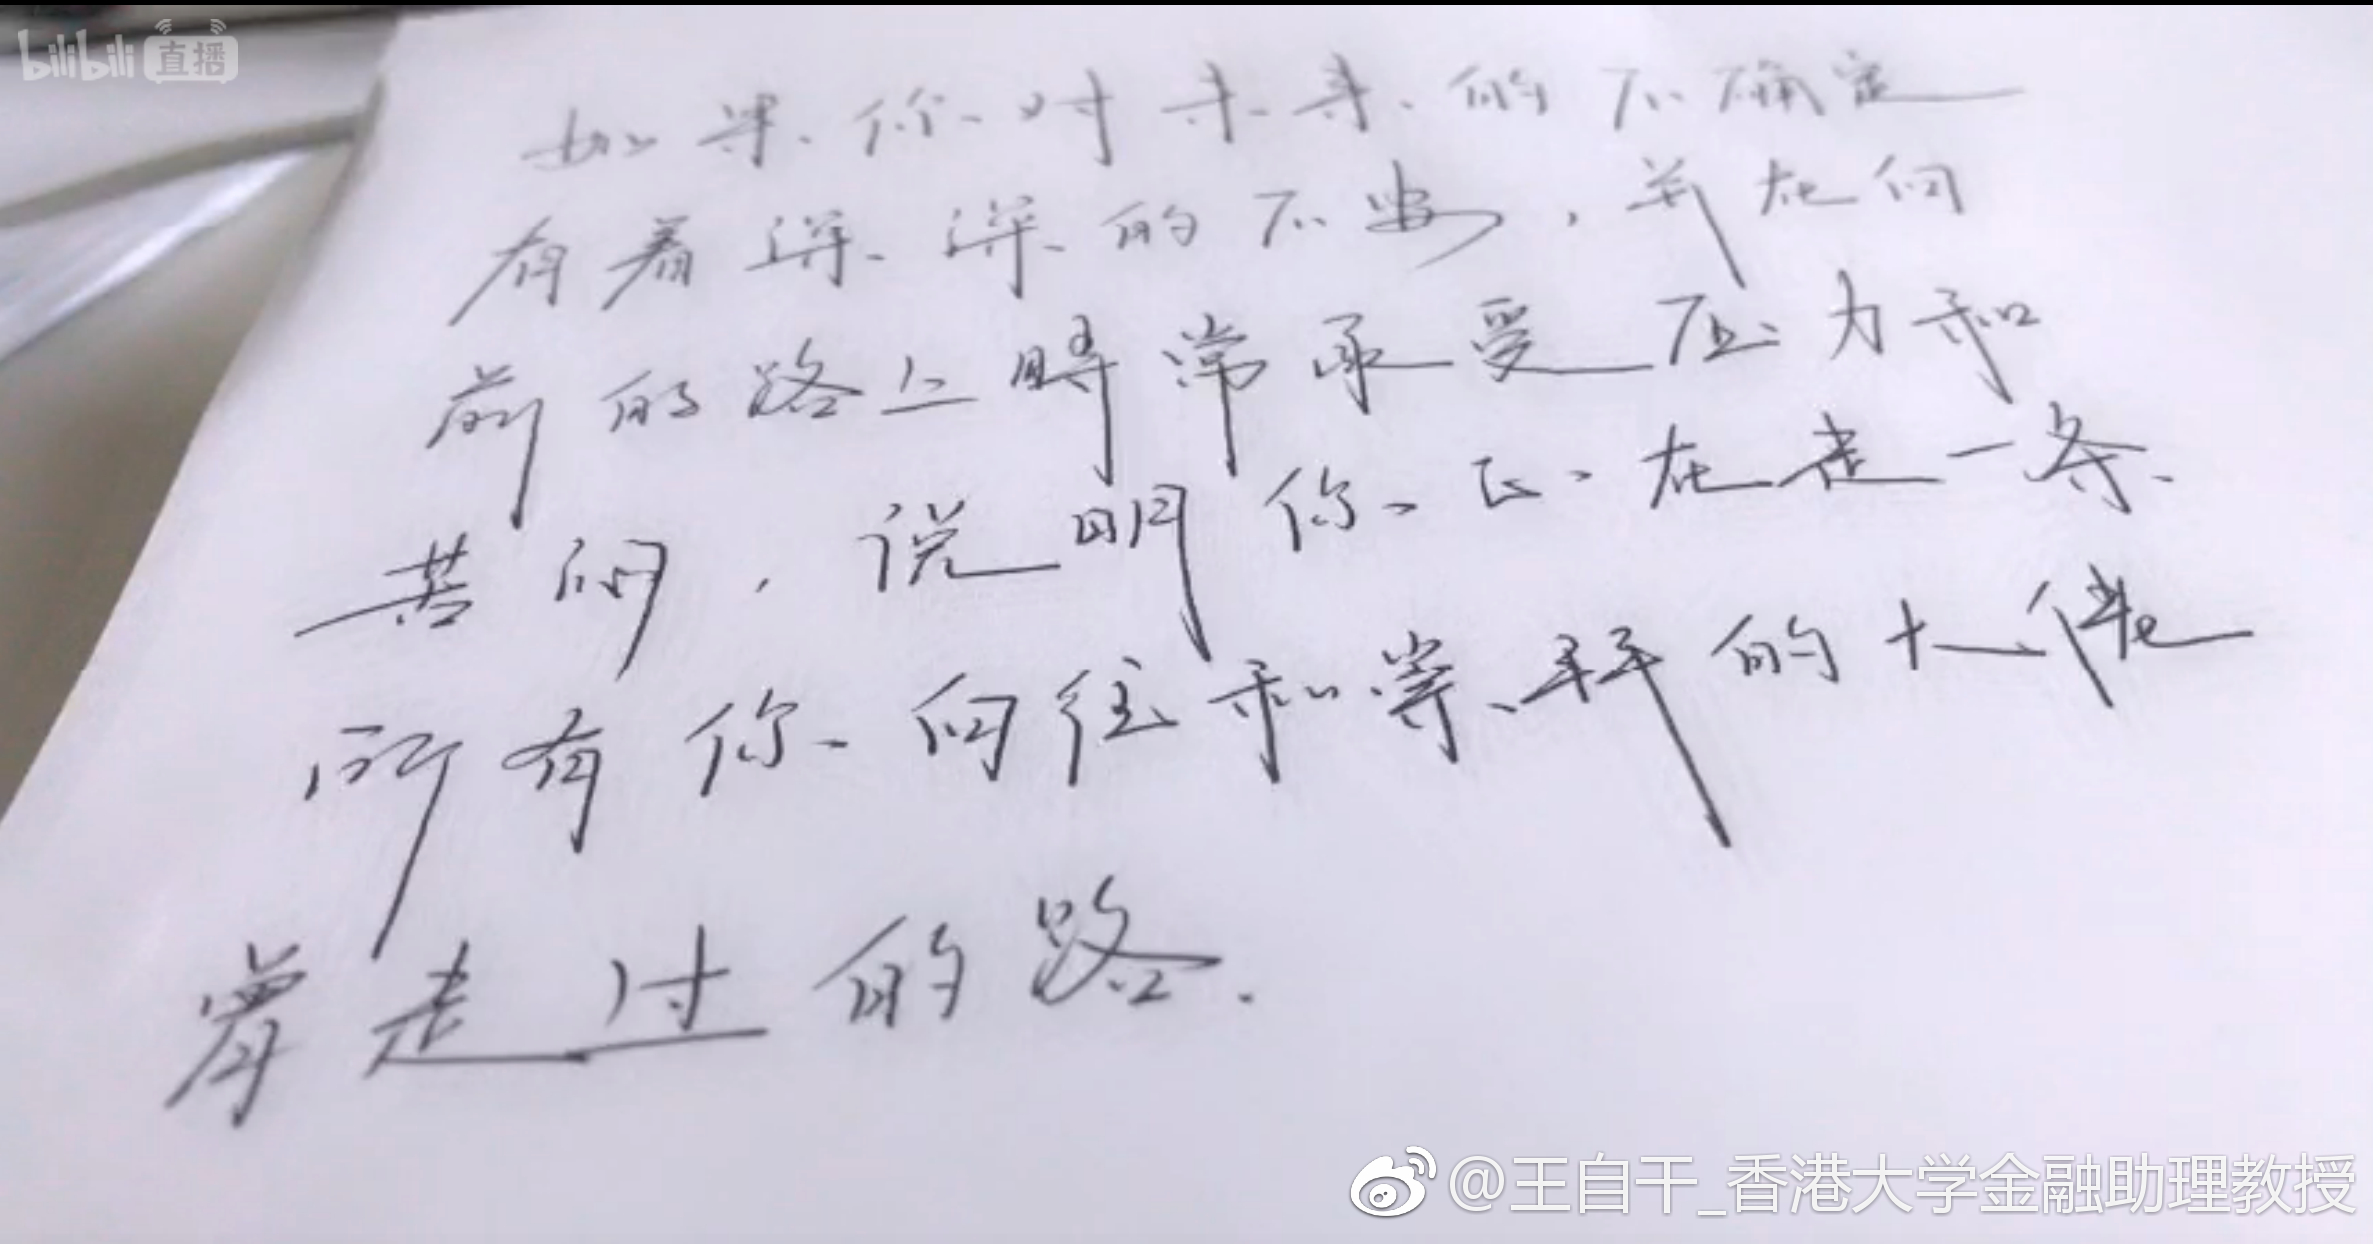 bilibili 直播
如果你对未来的不确定
有着深深的不安，并在向
前的路上时常承受压力和
苦闷，说明你正在走一条
所有你向往和崇拜的大佬
曾走过的路.
@王自干_香港大学金融助理教授